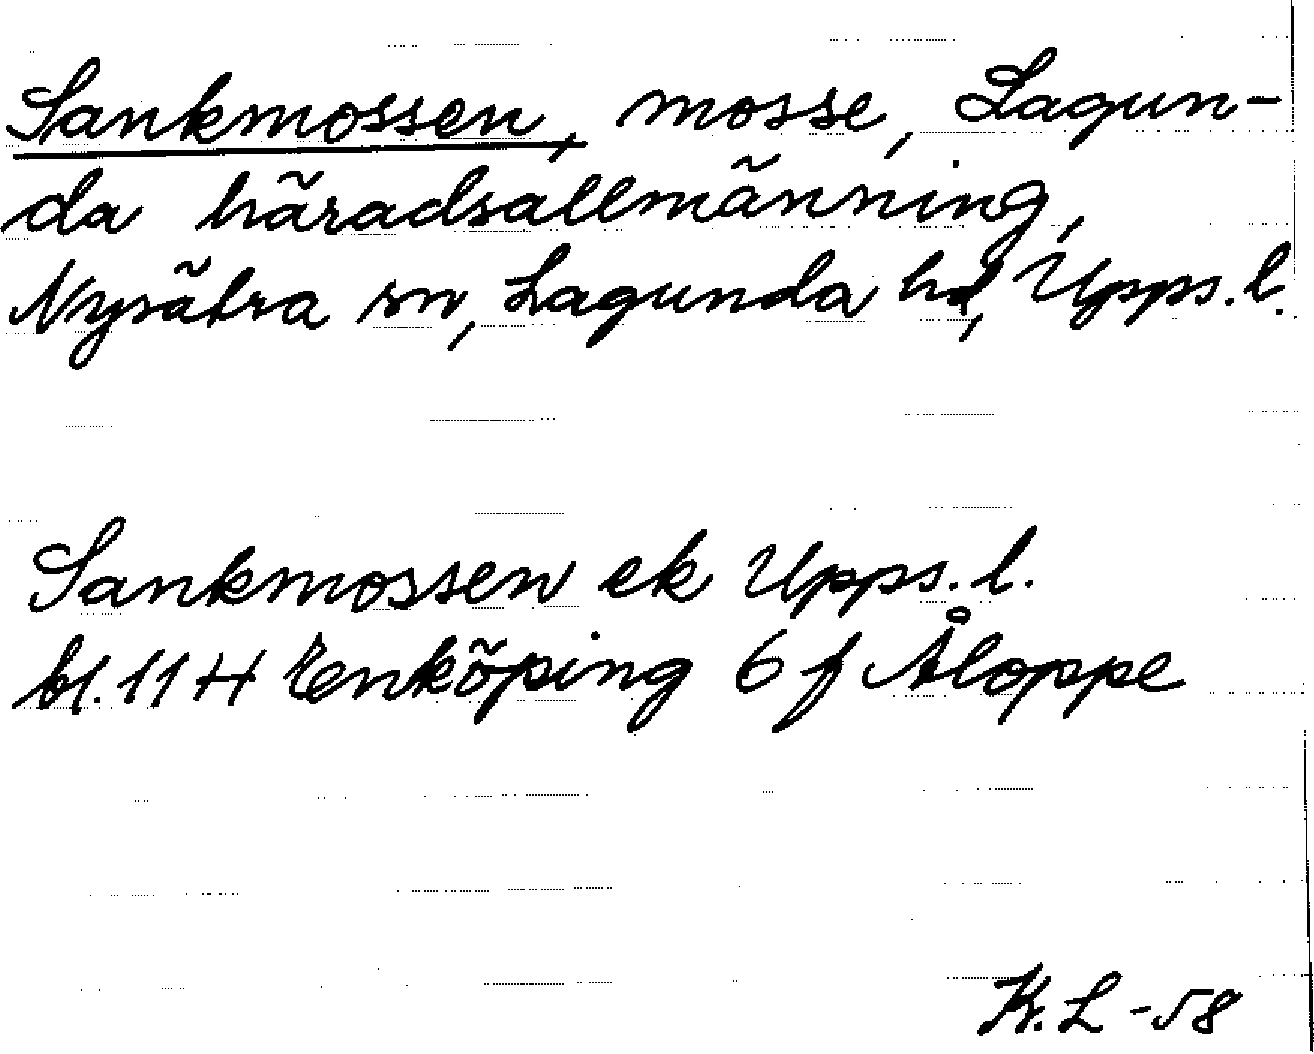 Sankmossen, mosse, Lagun-
da häradsallmänning,
Nysätra sn, Lagunda hd, Upps. l.
Sankmossen ek Upps. l.
bl. 11 H Enköping 6 f Åloppe
K. L -58